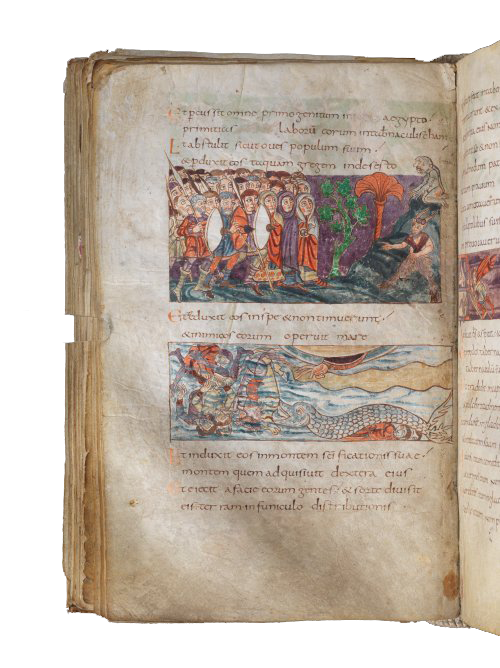 Et pcussit omne primogenitum in aegypto
primitias laborū eorum intabnaculis cham
Et abstulit sicut oues populum suum
& pduxit eos taquam gregem indeserto
Et eduxit eos inspe & non timuerunt
& inimicos eorum operuit mare
Et induxit eos inmontem scificationis suae
montem quem adquisiuit dextera eius
Et eiecit afacie eorum gentes & sorte diuisit
eis terram infuniculo distributionis